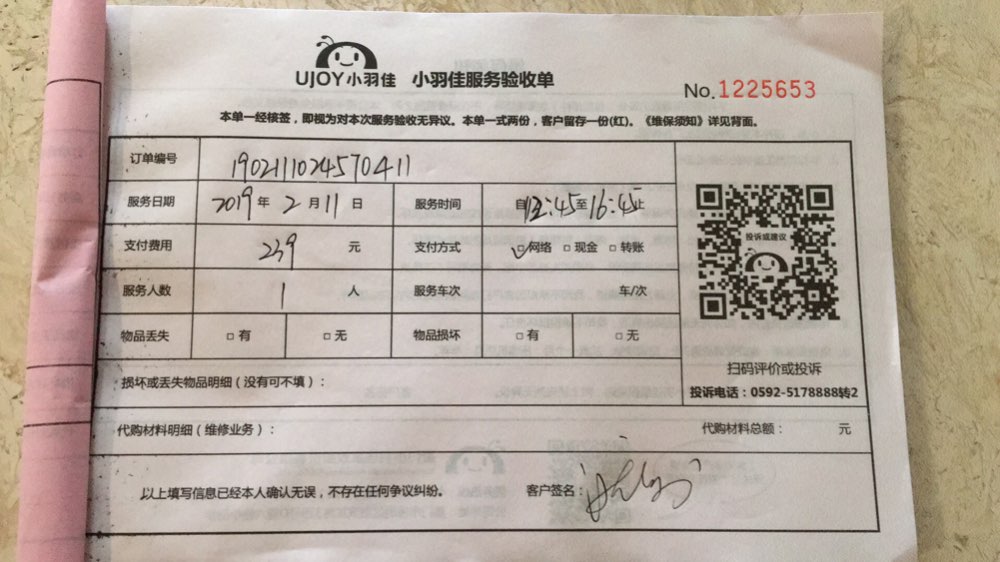 UJOY小羽佳 小羽佳服务验收单
No.1225653
本单一经核签，即视为对本次服务验收无异议。本单一式两份，客户留存一份(红)。《维保须知》详见背面。
订单编号 190211024570411
服务日期 2019年2月11日 服务时间 自12:45至16:45止
支付费用 239 元 支付方式 ✓□网络 □现金 □转账
投诉或建议
服务人数 1 人 服务车次 车/次
物品丢失 □有 □无 物品损坏 □有 □无
扫码评价或投诉
损坏或丢失物品明细（没有可不填）：
投诉电话：0592-5178888转2
代购材料明细（维修业务）： 代购材料总额： 元
以上填写信息已经本人确认无误，不存在任何争议纠纷。 客户签名：